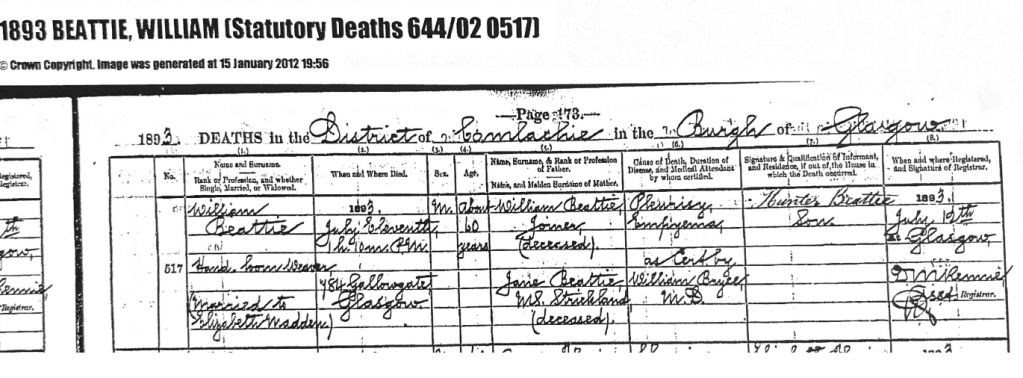 1893 BEATTIE, WILLIAM (Statutory Deaths 644/02 0517)
© Crown Copyright. Image was generated at 15 January 2012 19:56
Page 173.
1893. DEATHS in the District of Camlachie in the Burgh of Glasgow
(1.) (2.) (3.) (4.) (5.) (6.) (7.) (8.)
No. Name and Surname. Rank or Profession, and whether Single, Married, or Widowed. When and Where Died. Sex. Age. Name, Surname, & Rank or Profession of Father. Name, and Maiden Surname of Mother. Cause of Death, Duration of Disease, and Medical Attendant by whom certified. Signature & Qualification of Informant, and Residence, if out of the House in which the Death occurred. When and where Registered, and Signature of Registrar.
William 1893. M. About William Beattie, Pleurisy Hunter Beattie 1893.
Beattie July Eleventh 60 Joiner Empyema Son. July 12th
1 h. P.M. years (deceased) At Glasgow
as Cert by
517 Hand-loom Weaver
784 Gallowgate Jane Beattie William Bryce
(Married to Glasgow M.S. Strickland M.D. Registrar.
Elizabeth Madden) (deceased).
Registrar.